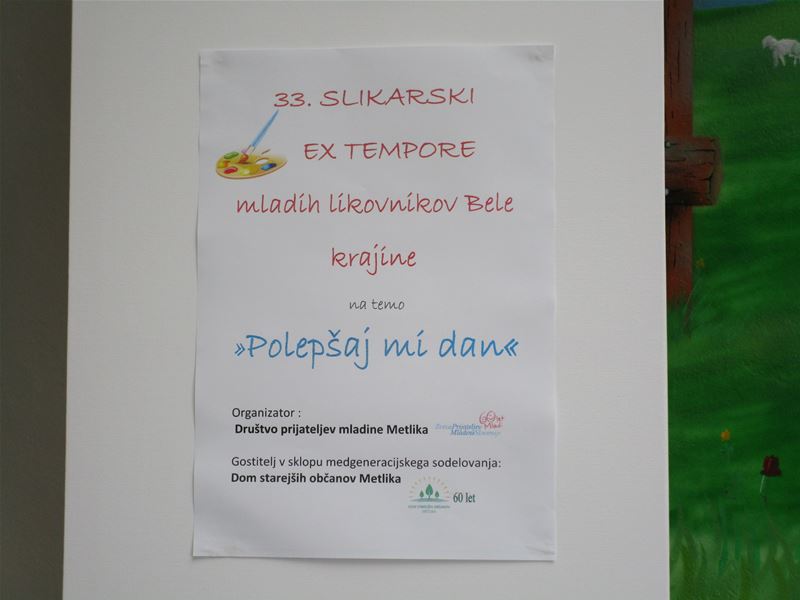 33. SLIKARSKI
EX TEMPORE
mladih likovnikov Bele
krajine
na temo
»Polepšaj mi dan«
Organizator :
Društvo prijateljev mladine Metlika
Zveza Prijateljev
Mladine Slovenije
Gostitelj v sklopu medgeneracijskega sodelovanja:
Dom starejših občanov Metlika
60 let